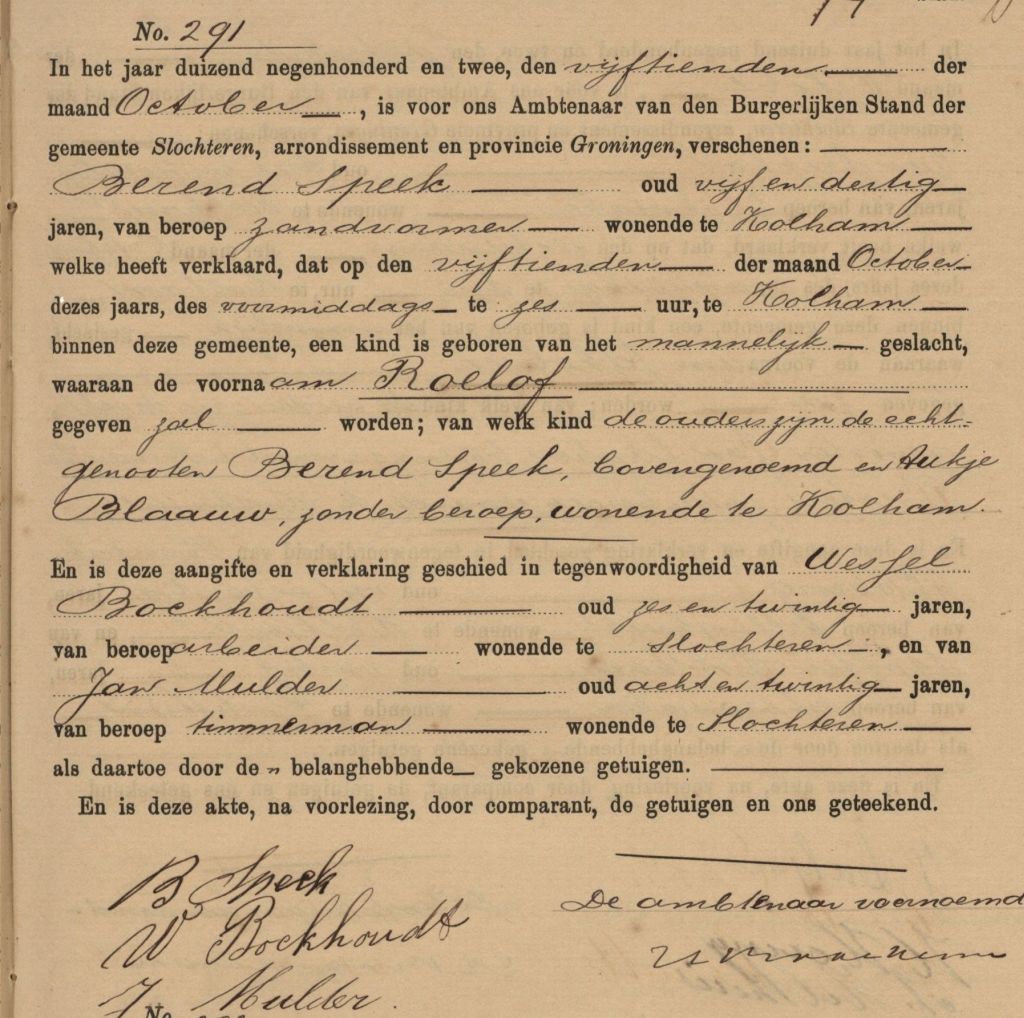 No. 291
In het jaar duizend negenhonderd en twee, den vijftienden der
maand October, is voor ons Ambtenaar van den Burgerlijken Stand der
gemeente Slochteren, arrondissement en provincie Groningen, verschenen:
Berend Speek oud vijf en dertig
jaren, van beroep zandvormer wonende te Kolham
welke heeft verklaard, dat op den vijftienden der maand October
dezes jaars, des voormiddags te zes uur, te Kolham
binnen deze gemeente, een kind is geboren van het mannelijk geslacht,
waaraan de voornaam Roelof
gegeven zal worden; van welk kind de ouders zijn de echt-
genooten Berend Speek, bovengenoemd en Aukje
Blaauw, zonder beroep, wonende te Kolham.
En is deze aangifte en verklaring geschied in tegenwoordigheid van Wessel
Boekhoudt oud zes en twintig jaren,
van beroep arbeider wonende te Slochteren, en van
Jan Mulder oud acht en twintig jaren,
van beroep timmerman wonende te Slochteren
als daartoe door de „ belanghebbende gekozene getuigen.
En is deze akte, na voorlezing, door comparant, de getuigen en ons geteekend.
B Speek
De ambtenaar voornoemd
W Boekhoudt
J Mulder.
No.